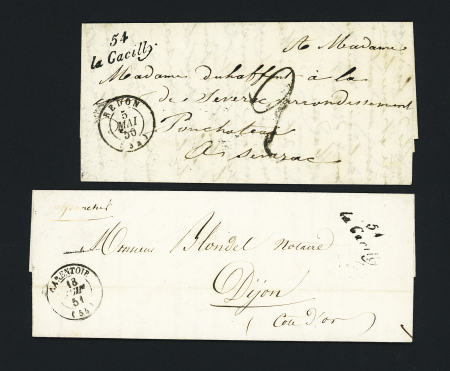 54
la Gacilly
A Madame
Madame duhaffont à la
de Severac arrondissement
Ponchateau
A severac
REDON
5
MAI
50
(34)
2
54
la Gacilly
Monsieur Blondel Notaire
Dijon
(Cote d'or)
CARENTOIR
18
51